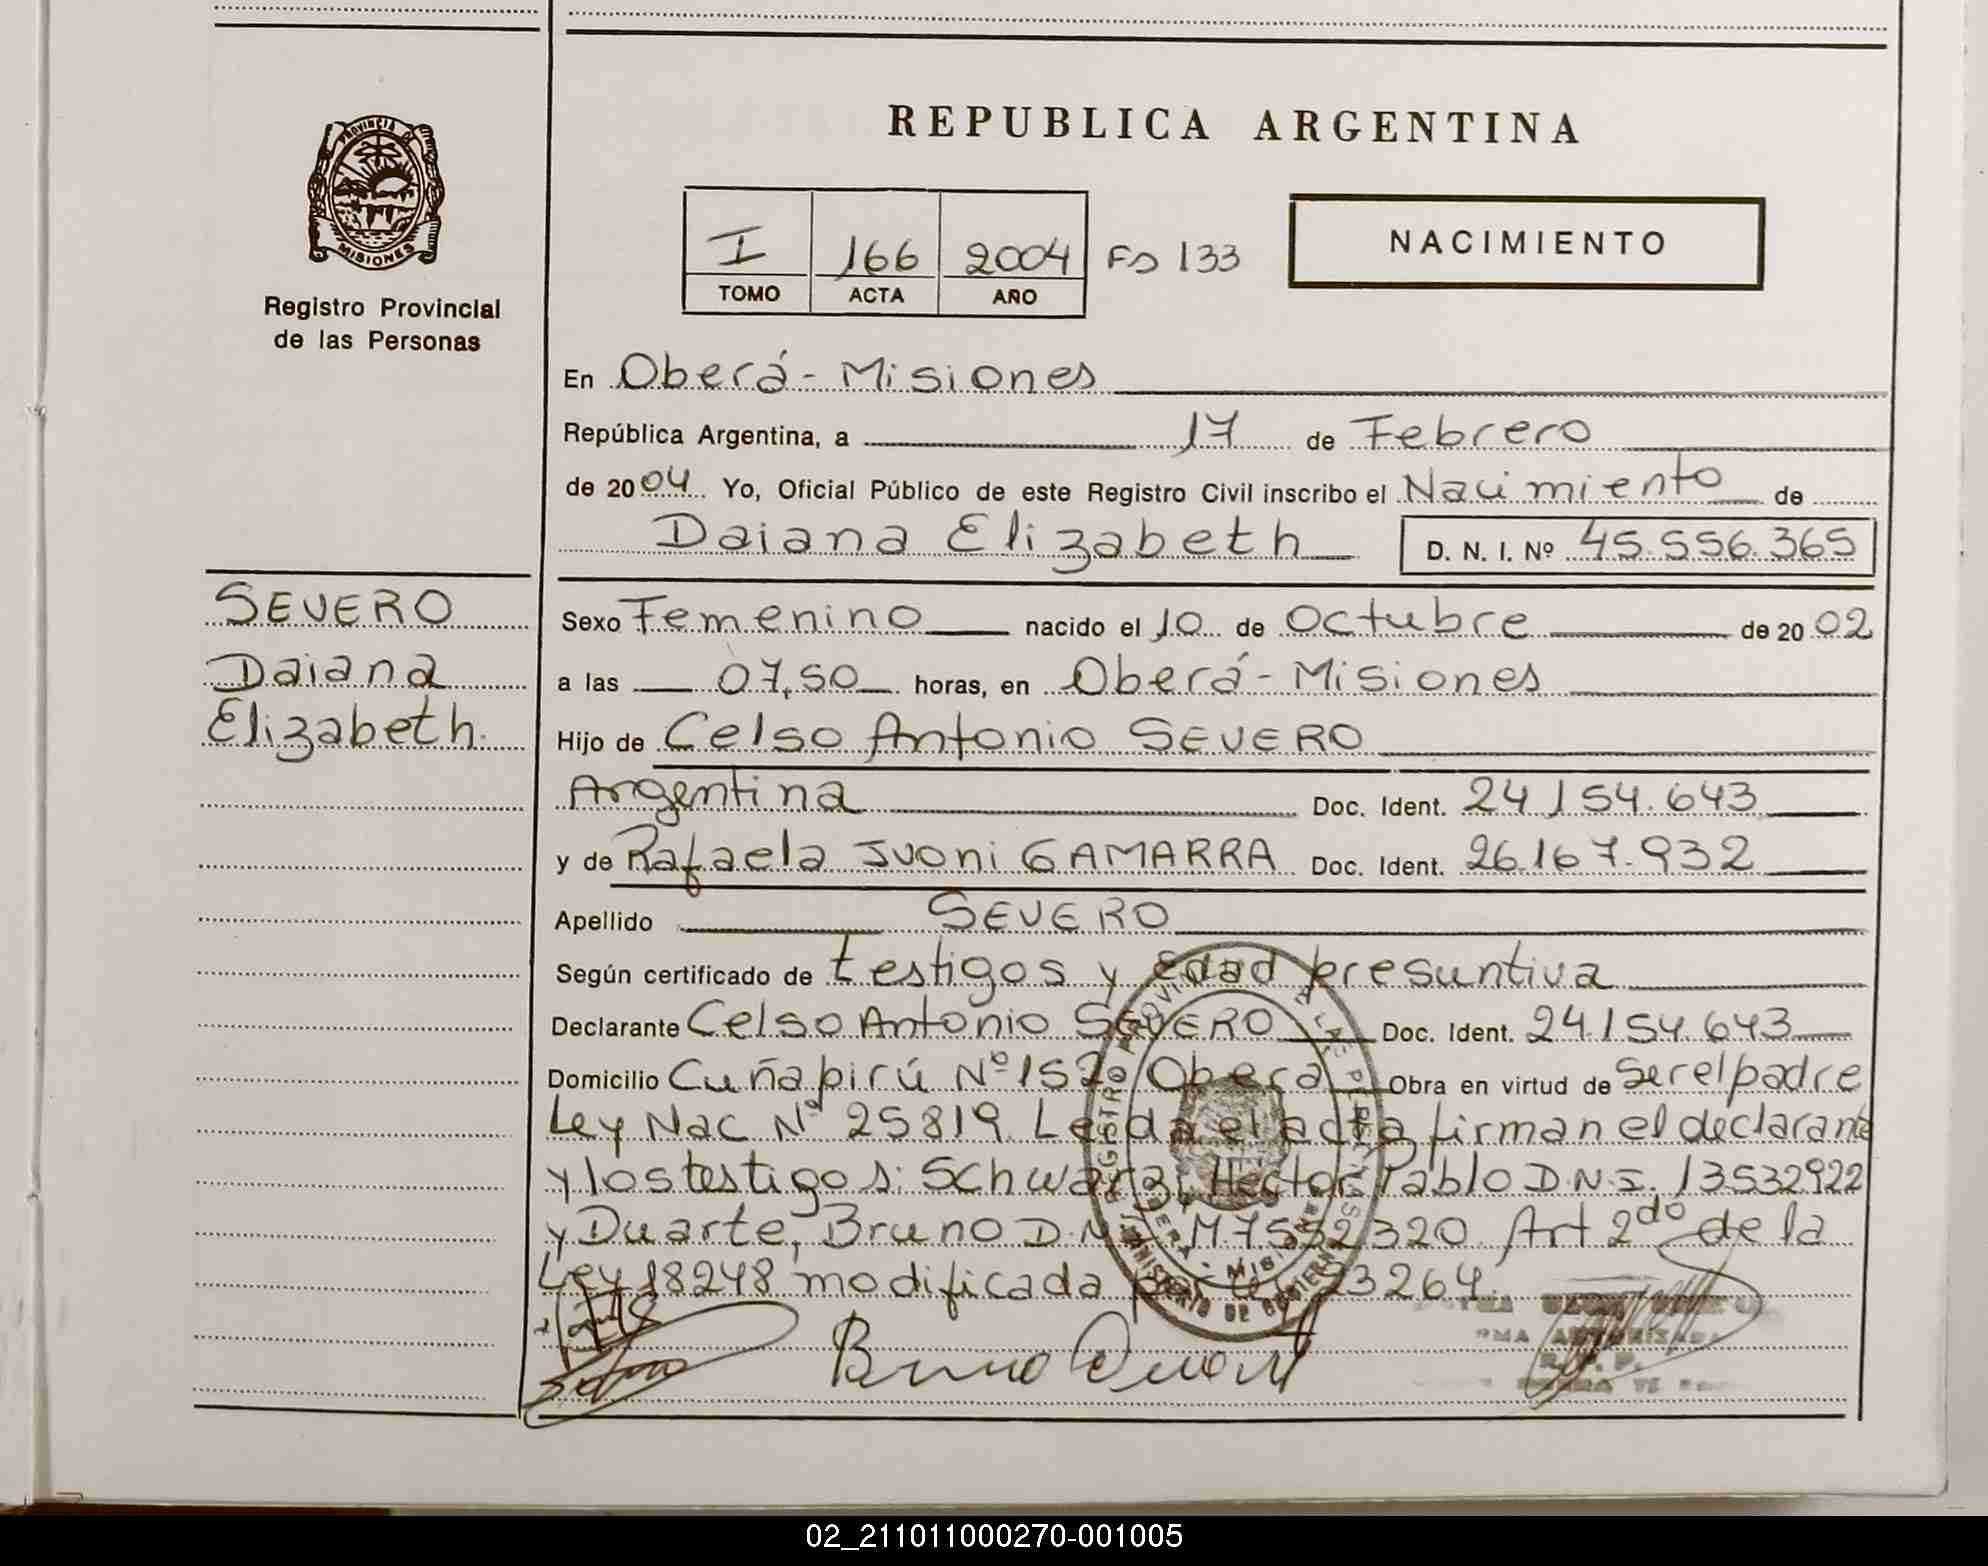 PROVINCIA DE
MISIONES
Registro Provincial
de las Personas
REPUBLICA ARGENTINA
I 166 2004 Fs 133
TOMO ACTA AÑO
NACIMIENTO
En Oberá - Misiones
República Argentina, a 17 de Febrero
de 2004 Yo, Oficial Público de este Registro Civil inscribo el Nacimiento de
Daiana Elizabeth D. N. I. Nº 45.556.365
SEVERO
Daiana
Elizabeth.
Sexo Femenino nacido el 10 de Octubre de 20 02
a las 07,50 horas, en Oberá - Misiones
Hijo de Celso Antonio SEVERO
Argentina Doc. Ident. 24.154.643
y de Rafaela Ivoni GAMARRA Doc. Ident. 26.167.932
Apellido SEVERO
Según certificado de testigos y edad presuntiva
Declarante Celso Antonio SEVERO Doc. Ident. 24.154.643
Domicilio Cuñapirú Nº 152 Oberá Obra en virtud de Ser el padre
Ley Nac Nº 25819. Leida el acta firman el declarante
y los testigos: Schwarz, Hector Pablo D.N.I. 13532922
y Duarte, Bruno D.N.I. M7552320. Art 2do de la
Ley 18248 modificada por la 23264.
Bruno Duarte
02_211011000270-001005